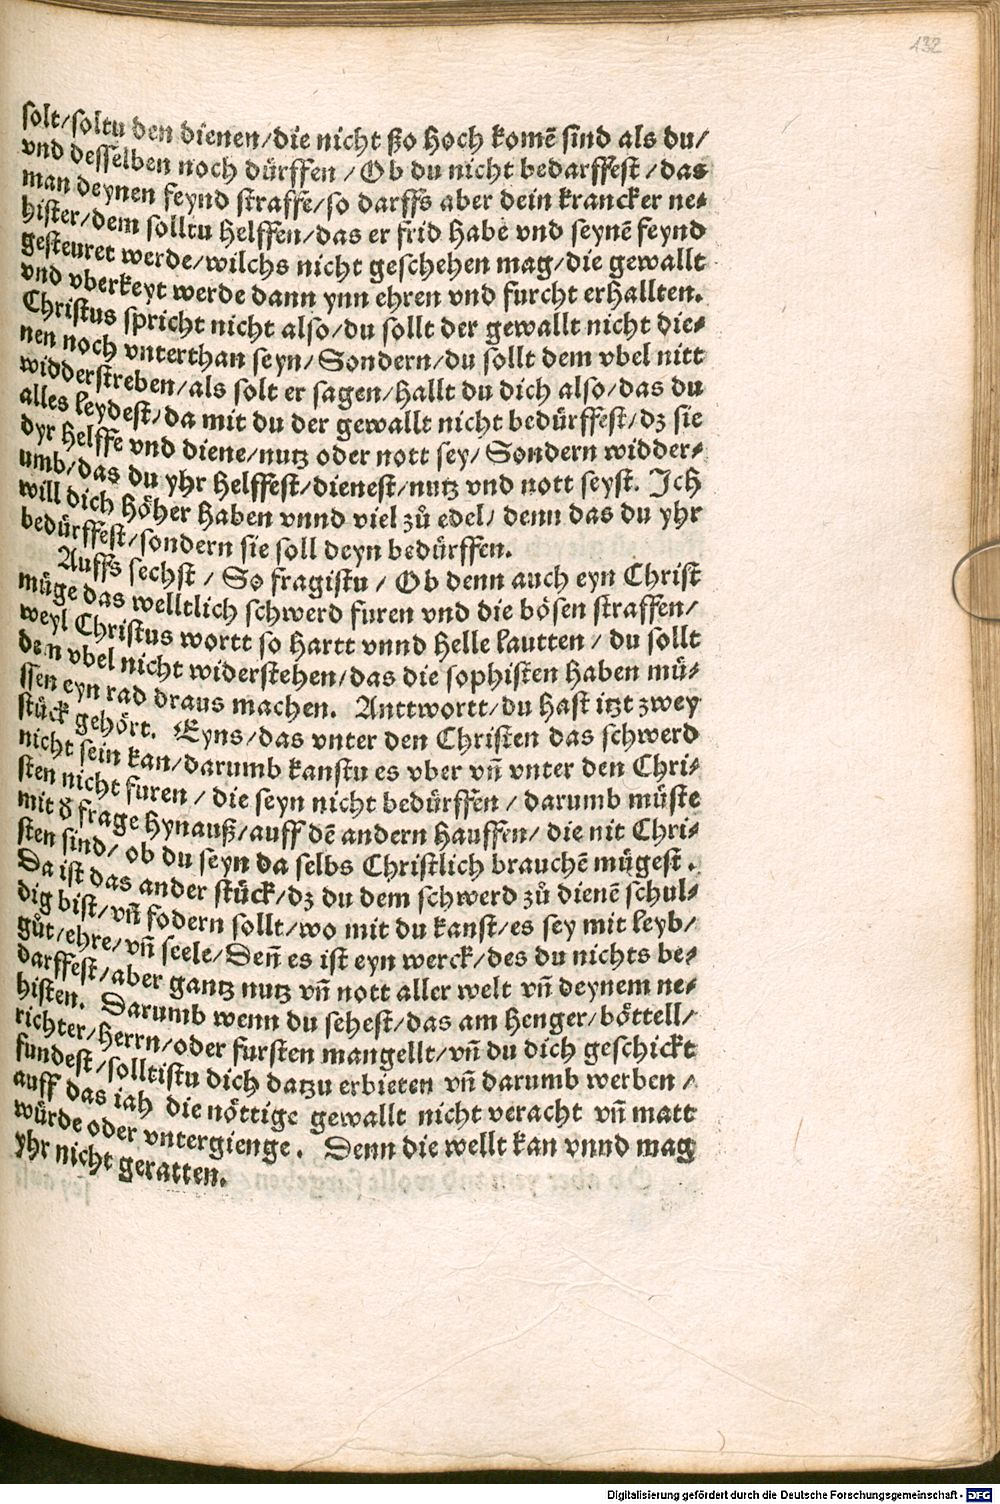 132
solt/soltu den dienen/die nicht ßo hoch komẽ sind als du/
vnd desselben noch dürffen /Ob du nicht bedarffest /das
man deynen feynd straffe/so darffs aber dein krancker ne-
hister/dem solltu helffen/das er frid habe vnd seynẽ feynd
gesteuret werde/wilchs nicht geschehen mag/die gewallt
vnd vberkeyt werde dann ynn ehren vnd furcht erhallten.
Christus spricht nicht also/du sollt der gewallt nicht die-
nen noch vnterthan seyn/Sondern/du sollt dem vbel nitt
widderstreben/als solt er sagen/hallt du dich also/das du
alles leydest/da mit du der gewallt nicht bedürffest/dz sie
dyr helffe vnd diene/nutz oder nott sey/Sondern widder-
umb/das du yhr helffest/dienest/nutz vnd nott seyst. Ich
will dich höher haben vnnd viel zů edel/ denn das du yhr
bedürffest/sondern sie soll deyn bedürffen.
Auffs sechst / So fragistu / Ob denn auch eyn Christ
müge das welltlich schwerd furen vnd die bösen straffen/
weyl Christus wortt so hartt vnnd helle lautten / du sollt
dem vbel nicht widerstehen/das die sophisten haben mü-
ssen eyn rad draus machen. Anttwortt/du hast itzt zwey
stück gehört. Eyns/das vnter den Christen das schwerd
nicht sein kan/darumb kanstu es vber vñ vnter den Chri-
sten nicht furen / die seyn nicht bedürffen / darumb müste
mit ď frage hynauß/auff dẽ andern hauffen/ die nit Chri-
sten sind/ ob du seyn da selbs Christlich brauchẽ mügest.
Da ist das ander stück/dz du dem schwerd zů dienẽ schul-
dig bist/vñ fodern sollt/wo mit du kanst/es sey mit leyb/
gůt/ehre/vñ seele/Deñ es ist eyn werck/des du nichts be-
darffest/aber gantz nutz vñ nott aller welt vñ deynem ne-
histen. Darumb wenn du sehest/das am henger/böttell/
richter/herrn/oder fursten mangellt/vñ du dich geschickt
fundest/solltistu dich datzu erbieten vñ darumb werben /
auff das iah die nöttige gewallt nicht veracht vñ matt
würde oder vntergienge. Denn die wellt kan vnnd mag
yhr nicht geratten.
Digitalisierung gefördert durch die Deutsche Forschungsgemeinschaft - DFG